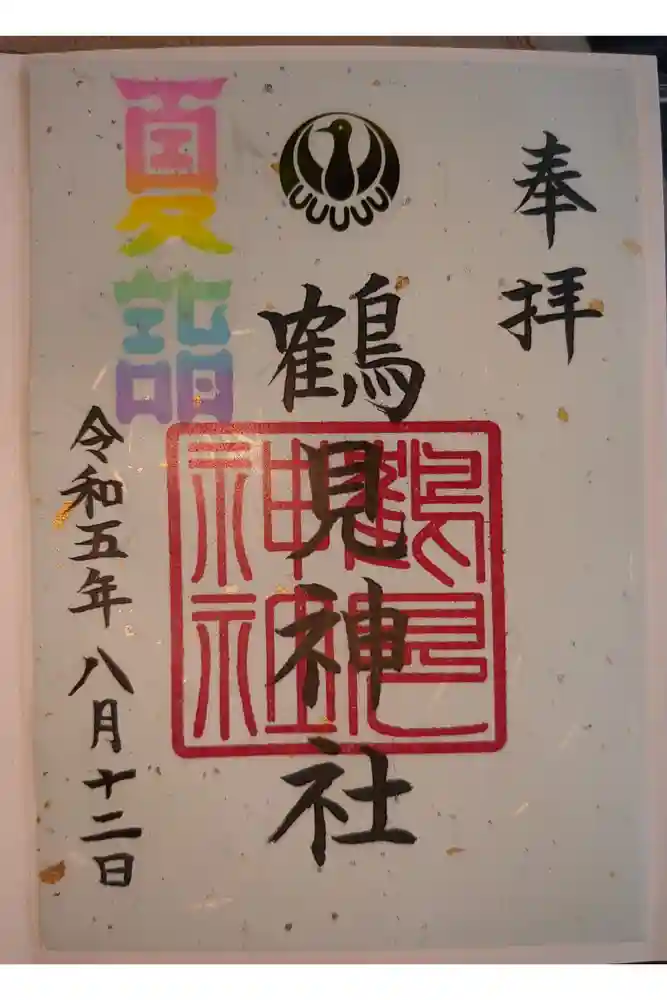 奉拝
鶴見神社
鶴見神社
夏詣
令和五年八月十二日